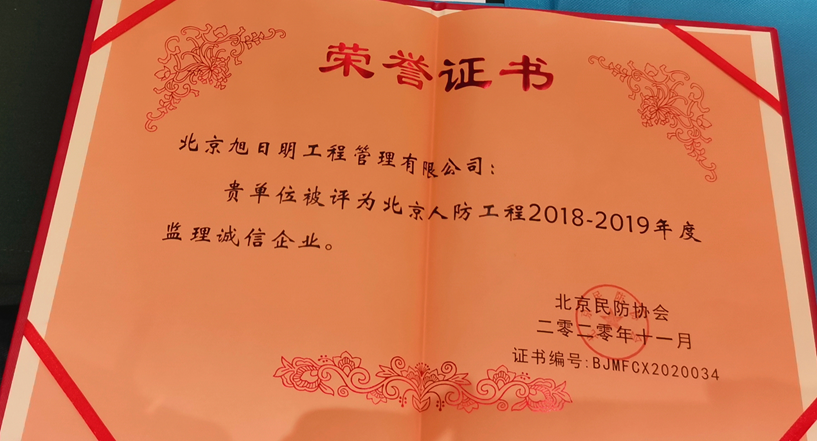 荣誉证书
北京旭日明工程管理有限公司：
贵单位被评为北京人防工程2018-2019年度
监理诚信企业。
北京民防协会
二零二零年十一月
证书编号：BJMFCX2020034